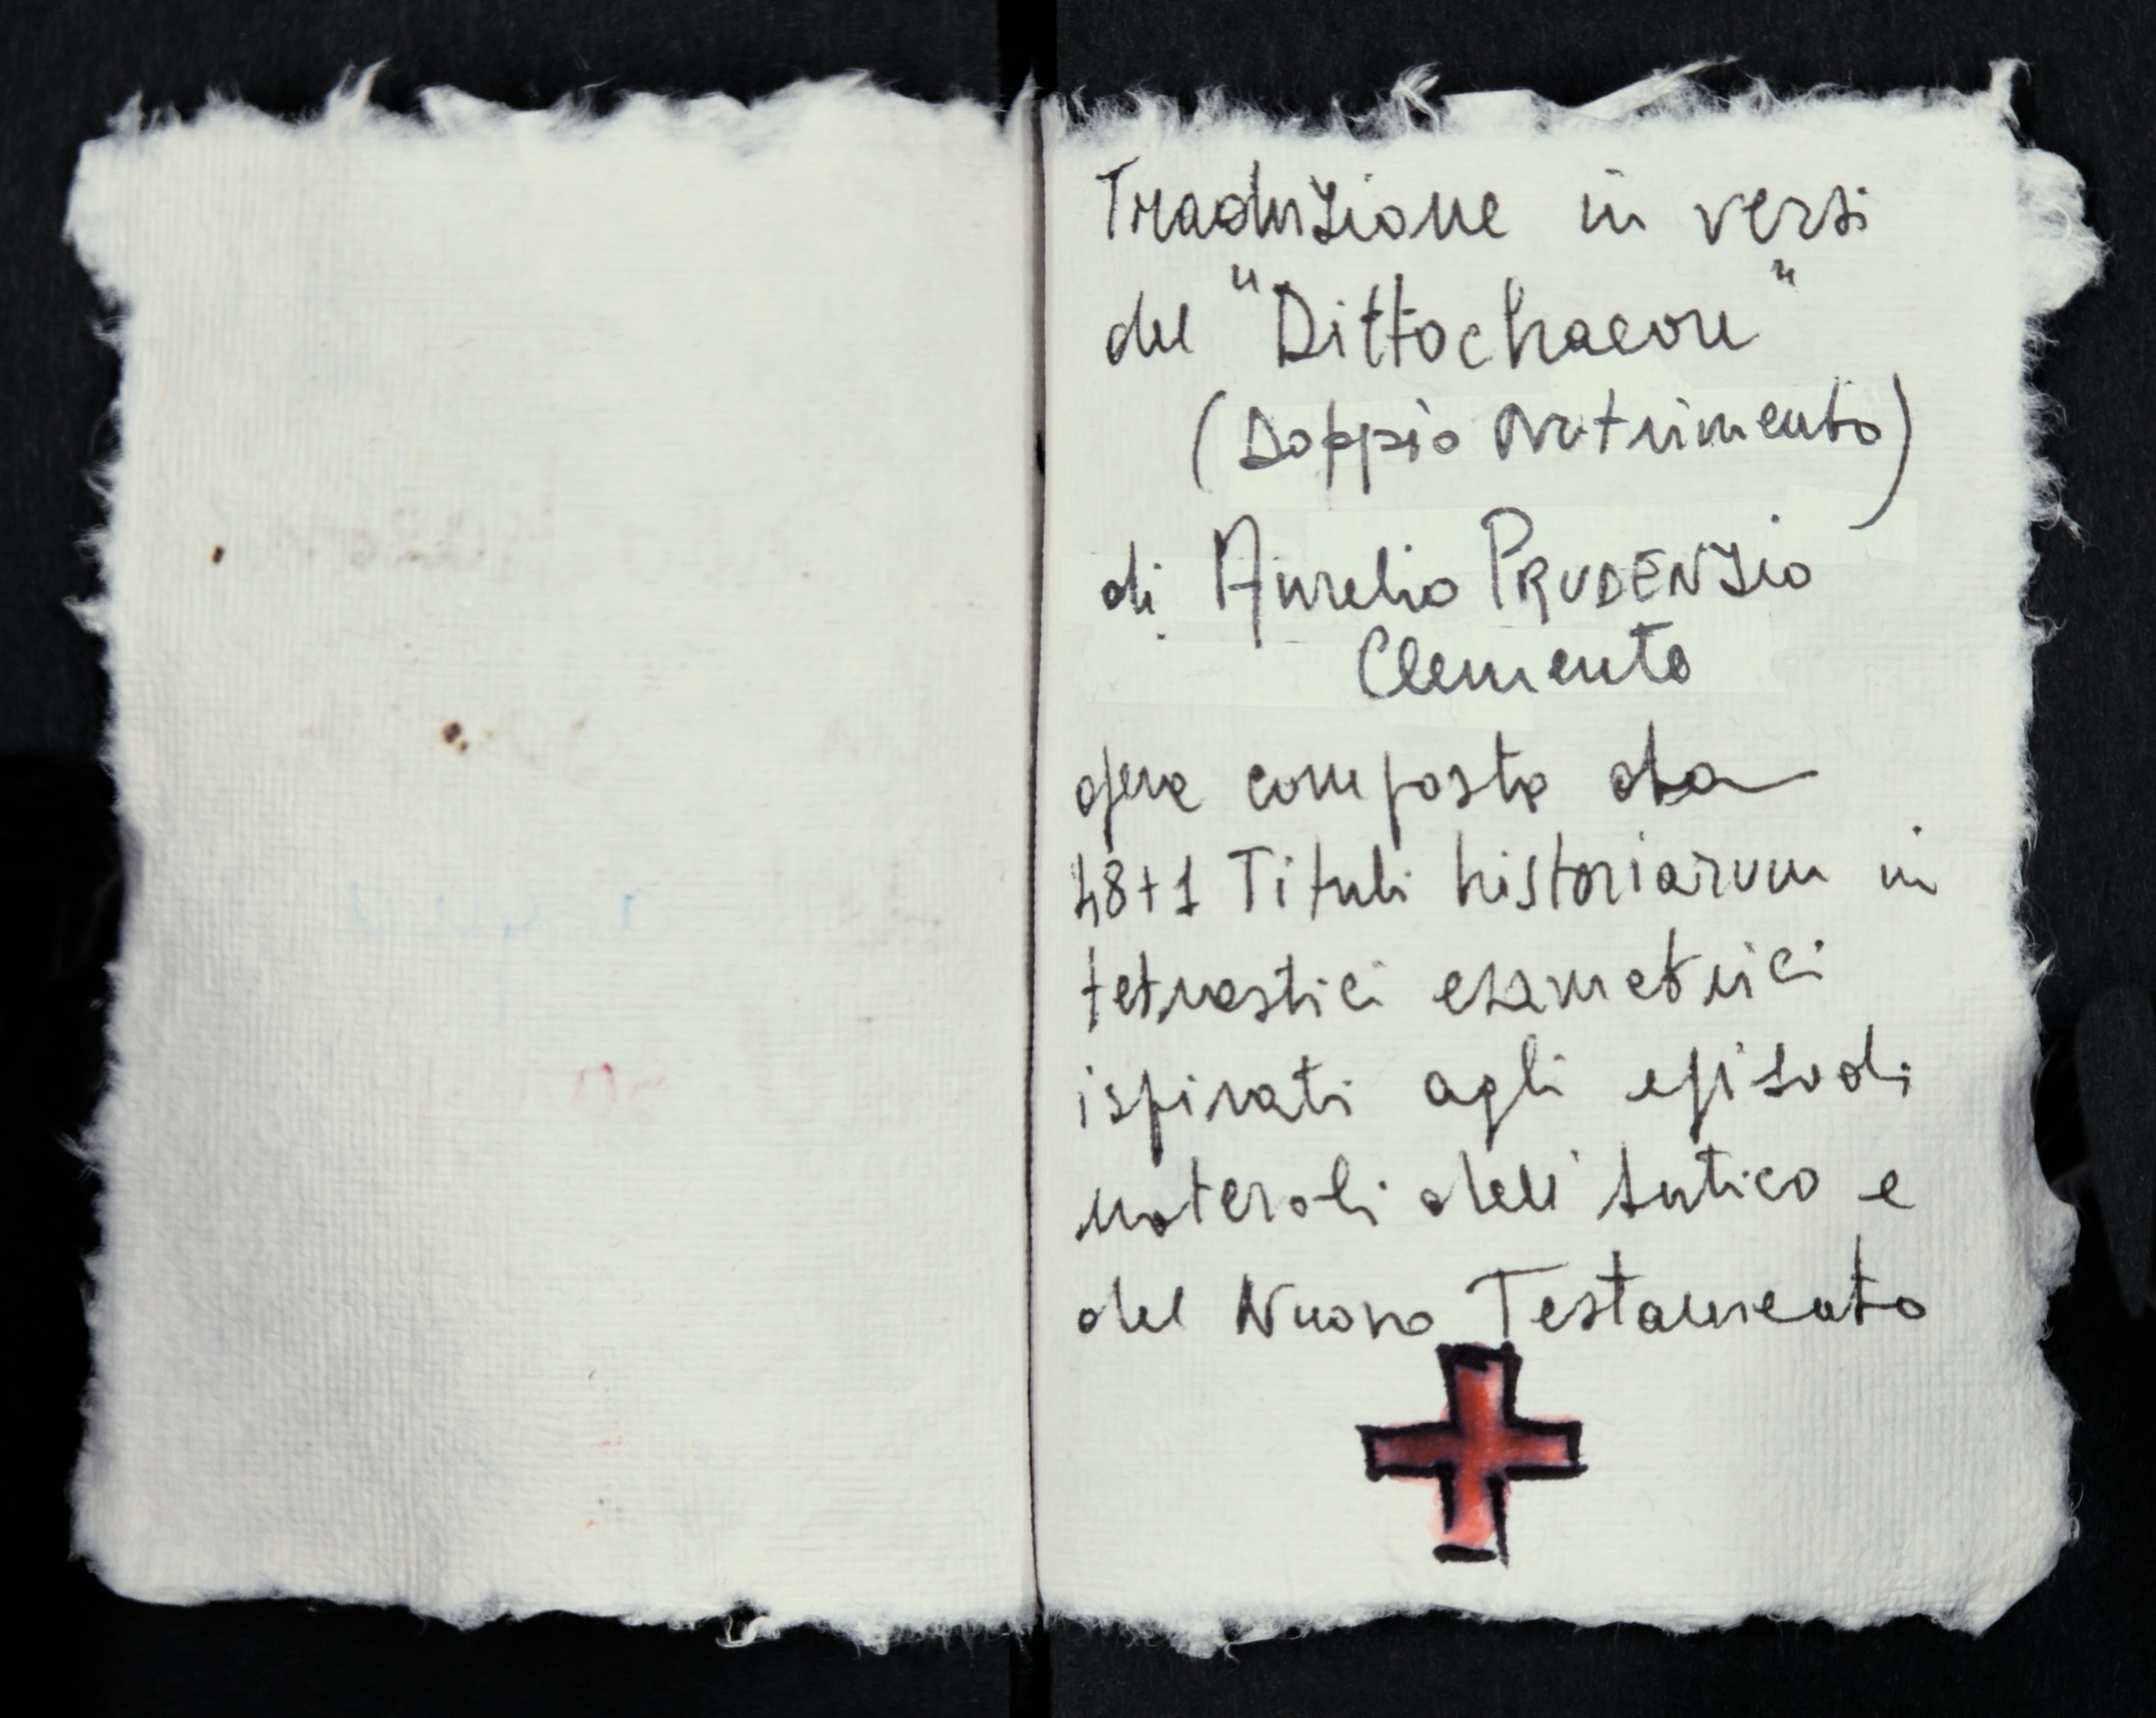 Traduzione in versi
del "Dittochaeon"
(Doppio Nutrimento)
di Aurelio PRUDENZio
Clemente
opera composta da
48+1 Tituli historiarum in
tetrastici esametrici
ispirati agli episodi
dell'Antico e
del Nuovo Testamento